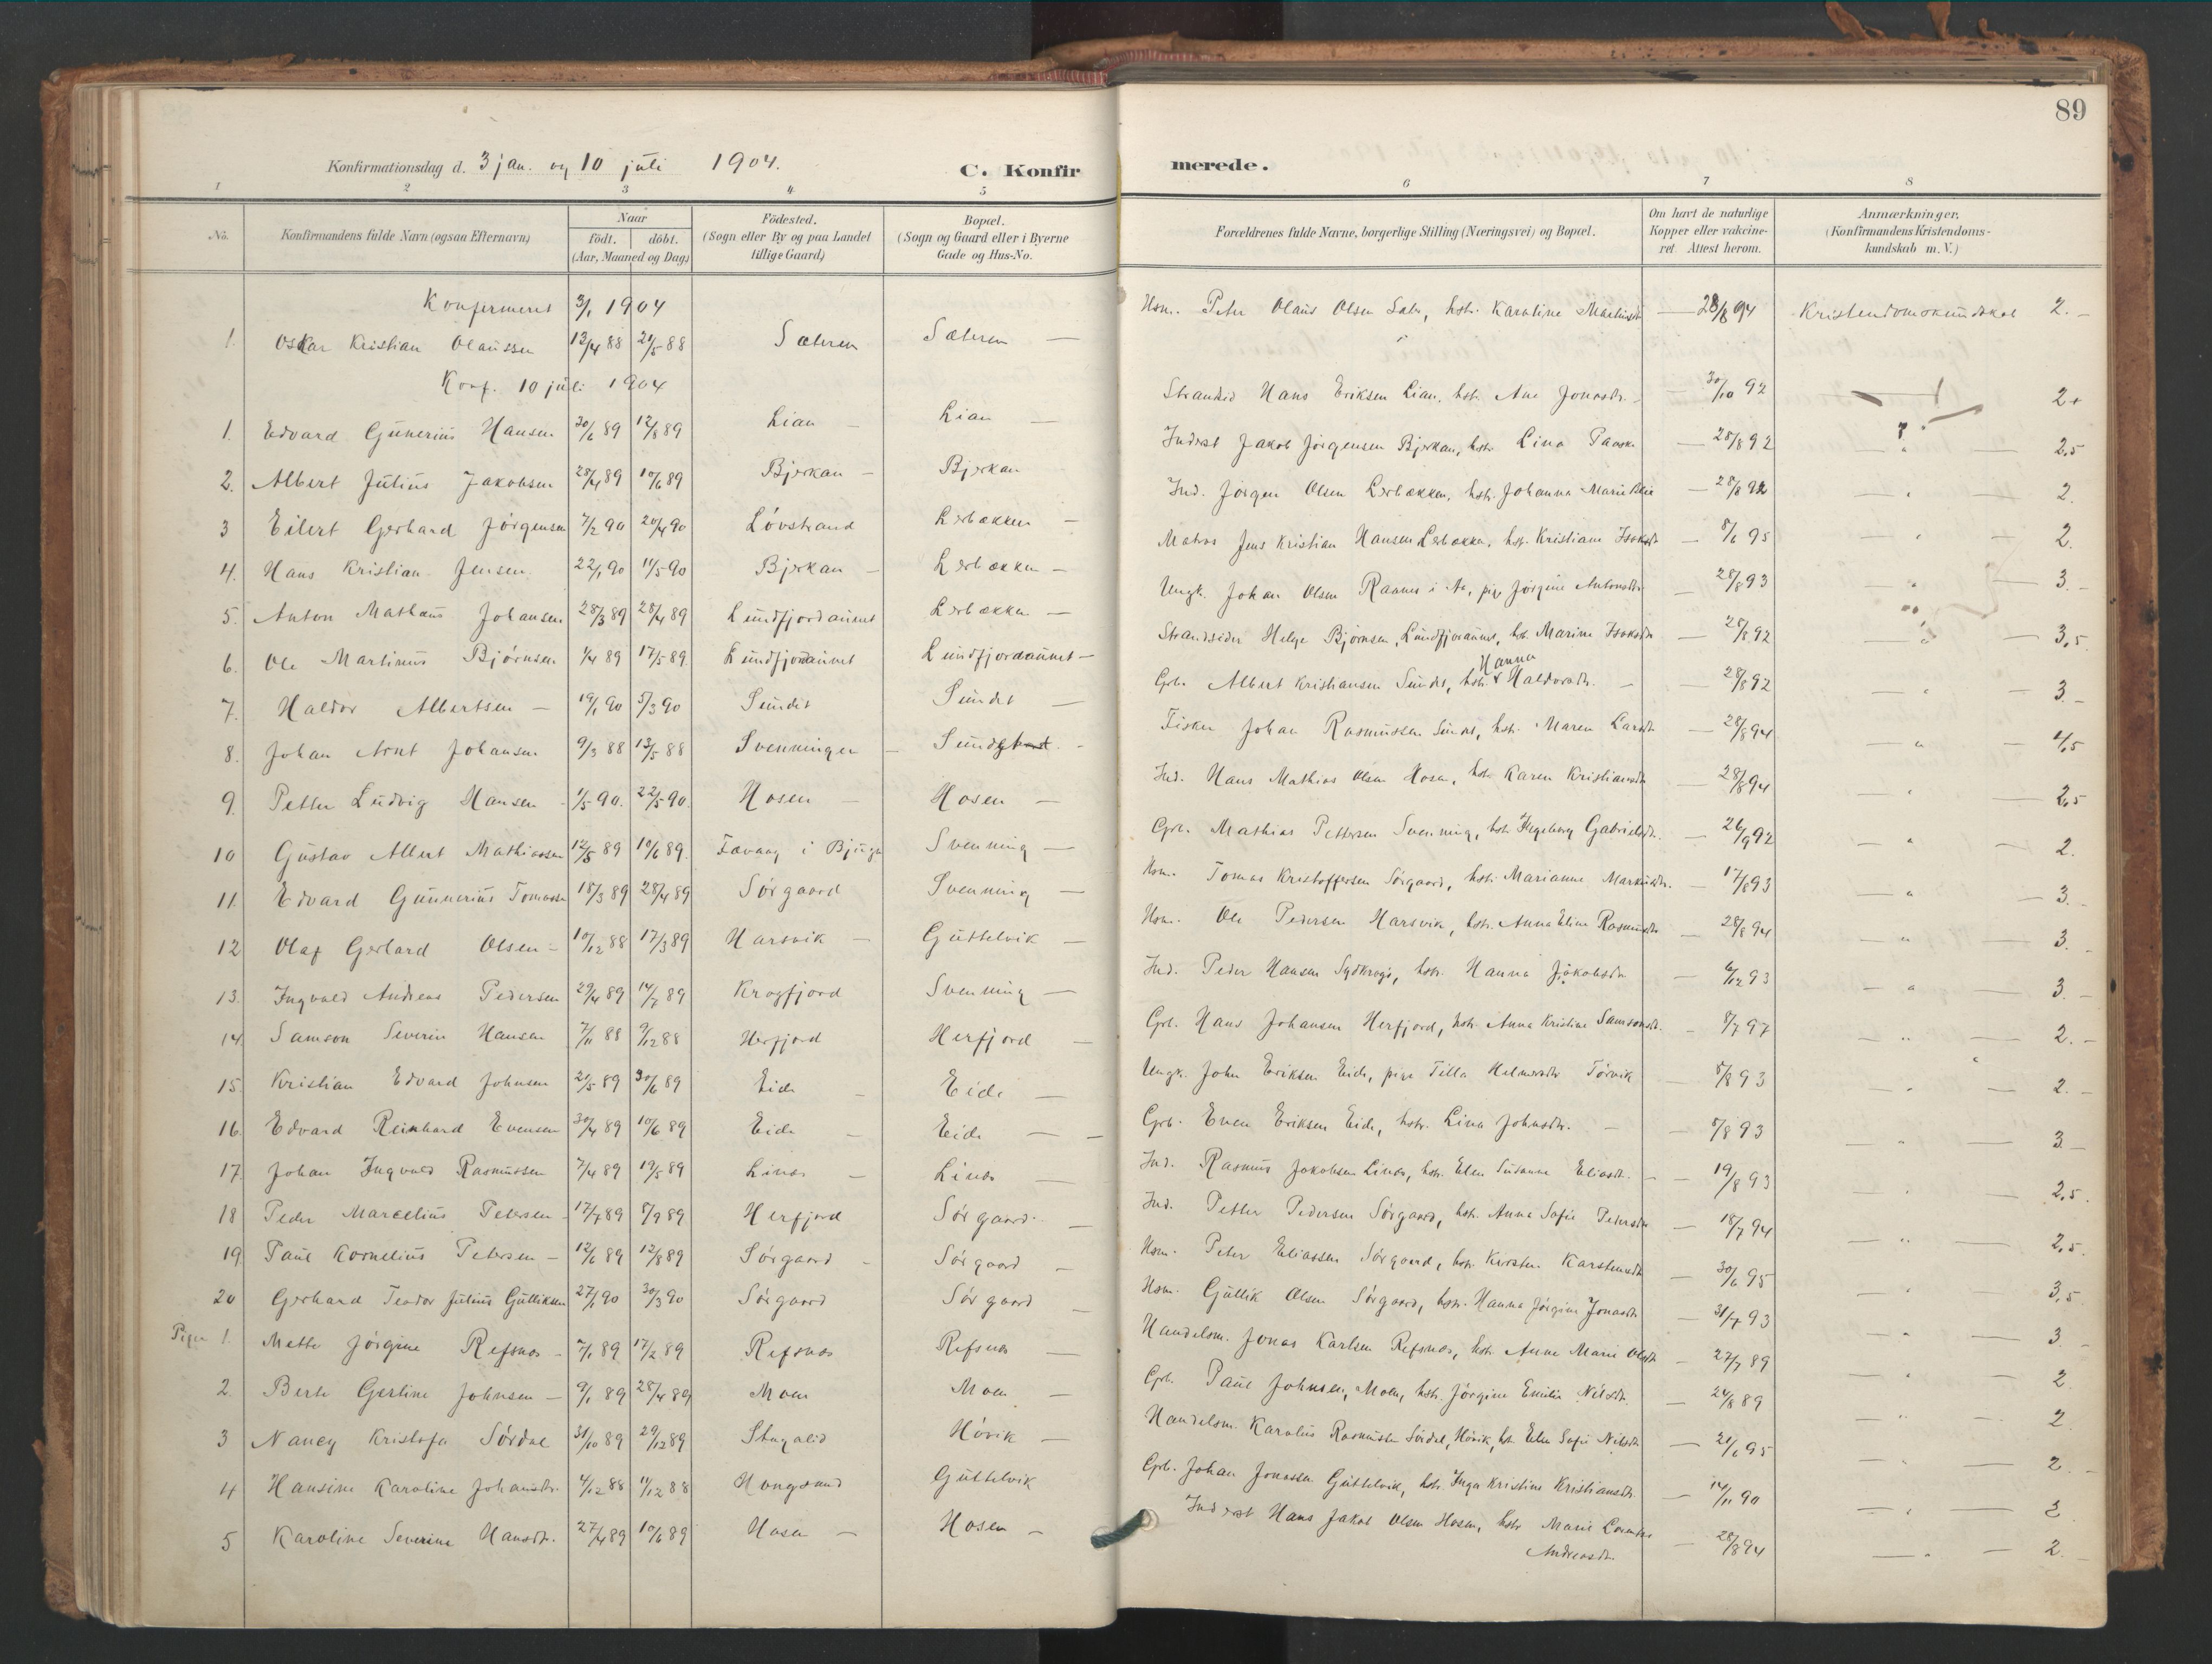 89
Konfirmationsdag d. 3 jan. og 10 juli 1904.
C. Konfirmerede.
1 2 3 4 5 6 7 8
No. Konfirmandens fulde Navn (ogsaa Efternavn) Naar födt. döbt. (Aar, Maaned og Dag) Födested. (Sogn eller By og paa Landet tillige Gaard) Bopæl. (Sogn og Gaard eller i Byerne Gade og Hus-No. Forældrenes fulde Navne, borgerlige Stilling (Næringsvei) og Bopæl. Om havt de naturlige Kopper eller vakcineret. Attest herom. Anmærkninger. (Konfirmandens Kristendomskundskab m. V.)
Konfirmeret 3/1 1904
1. Oskar Kristian Olaussen 12/4 88 21/5 88 Sæteren Sæteren — Hsm. Peter Olaus Olsen Sætr, hstr. Karoline — 28/8 94 Kristendomskundskab 2. -
Konf. 10 juli 1904
1. Edvard Gunerius Hansen 30/6 89 12/8 89 Lian — Lian — Strandsid Hans Eriksen Lian, hstr. Ane Jonasdr. — 30/10 92 2+
2. Albert Julius Jakobsen 28/4 89 10/6 89 Bjerkan — Bjerkan Inderst Jakob Jørgensen Bjerkan, hstr. Lina — 28/8 92 " 2,5
3 Eilert Gerhard Jørgensen 7/2 90 20/4 90 Lövstrand Lerbækken — Ind. Jørgen Olsen Lerbækken, hstr. Johanna Marie — 28/8 92 — " — 2.
4. Hans Kristian Jensen 22/1 90 11/5 90 Bjerkan — Lerbækken — Matros Jens Kristian Hansen Lerbækken, hstr. Kristiane Isaksdr — 8/6 95 — " — 2.
5. Anton Mathæus Johansen 28/3 89 28/4 89 Lundfjordaunet Lerbækken — Ungk. Johan Olsen i Aa, pige Jørgine Antonsdr — 28/8 93 — " — 3. -
6. Ole Martinus Bjørnsen 1/4 89 17/5 89. Lundfjordaunet Lundfjordaunet — Strandsider Helge Bjørnsen, Lundfjordaunet, hstr. Marine Isaksdr — 28/8 92 " — 3,5
7. Haldor Albertsen — 19/1 90 5/3 90 Sundet Sundet — Grb. Albert Kristiansen Sundet, hstr. Hanna Haldorsdr. — 28/8 92 — " — 3. -
8. Johan Arnt Johansen 9/3 88 13/5 88 Svenningen — Sundet — Fisker Johan Rasmussen Sundet, hstr. Maren Larsdr — 28/8 94 — " — 4,5
9. Petter Ludvig Hansen 1/5 90. 22/5 90. Hosen — Hosen — Ind. Hans Mathias Olsen Hosen, hstr. Karen Kristiansdr — 28/8 94 — " — 2,5
10 Gustav Albert Mathiassen 12/5 89 10/6 89. i Bjugn Svenning — Grb. Mathias Pettersen Svenning, hstr. Ingeborg Gabrielsdr. — 26/9 92 — " — 2.
11. Edvard Gunnerius Tomassen 18/3 89 28/4 89 Sörgaard Svenning — Hsm. Tomas Kristoffersen Sörgaard, hstr. Marianne Markusdr. — 17/8 93 — " — 3. -
12 Olaf Gerhard Olsen — 10/12 88 17/3 89 Harsvik — Guttelvik — Hsm. Ole Pedersen Harsvik, hstr. Anna Eline Rasmusdr — 28/8 94 — " — 3. -
13. Ingvald Andreas Pedersen 29/4 89 14/7 89 Krogfjord Svenning — Ind. Peder Hansen Sydkrogø, hstr. Hanna Jakobsdr — 6/12 93 — " — 3. -
14. Samson Severin Hansen 7/11 88 9/12 88 Herfjord Herfjord — Grb. Hans Johansen Herfjord, hstr. Anna Kristine Samsonsdr. — 8/7 97 — " — 2. -
15. Kristian Edvard Johnsen 21/5 89 30/6 89 Eide — Eide — Ungk. John Eriksen Eide, pige Tilla Helmersdr Törvik — 8/8 93 — " — 2. -
16. Edvard Reinhard Evensen 30/4 89 10/6 89 Eide — Eide — Grb. Even Eriksen Eide, hstr. Lina Johnsdr. — 8/8 93 — " — 3 -
17. Johan Ingvald Rasmussen 7/4 89 19/5 89 Linas — Linas — Ind. Rasmus Jakobsen Linas, hstr. Elen Susanne Eliasdr. — 19/8 93 — " — 2,5.
18 Peder Marcelius Petersen — 17/7 89 8/9 89 Herfjord Sörgaard — Ind. Petter Pedersen Sörgaard, hstr. Anna Sofie Pedersdr — 18/7 94 — " — 2,5.
19. Paul Kornelius Petersen — 12/6 89 12/8 89 Sörgaard — Sörgaard — Hsm. Peter Eliassen Sörgaard, hstr. Kirsten Karstensdr — 30/6 95 — " — 3,5
20 Gerhard Teodor Julius Gulliksen 27/1 90 30/3 90 Sörgaard Sörgaard — Hsm. Gullik Olsen Sörgaard, hstr. Hanna Jørgine Jonasdr — 31/7 93 — " — 3 -
Piger 1. Mette Jörgine Refsnes — 7/1 89 17/2 89 Refsnes Refsnes — Handelsm. Jonas Karlsen Refsnes, hstr. Anne Marie Olsdr — 27/7 89 — " — 2
2. Berte Gertine Johnsen — 9/1 89 28/4 89 Moen Moen — Grb. Paul Johnsen, Moen, hstr. Jörgine Emilie Nilsdr. — 24/8 89 " 2
3 Nancy Kristofa Sördal 31/10 89 29/12 89 Hövik — Handelsm. Karolus Rasmussen Sördal, Hövik, hstr. Elen Sofie Nilsdr — 21/6 95 — " — 2 -
4 Hansine Karoline Johansdr. 4/12 88 11/12 88 Hongsand Guttelvik Grb. Johan Jonassen Guttelvik, hstr. Inga Kristine Kristiansdr. — 14/11 90 — " — 2
5 Karoline Severine Hansdr. 27/4 89 10/6 89 Hosen — Hosen — Inderst Hans Jakob Olsen Hosen, hstr Marie
Andreasdr. — 28/8 94 — " — 2. -